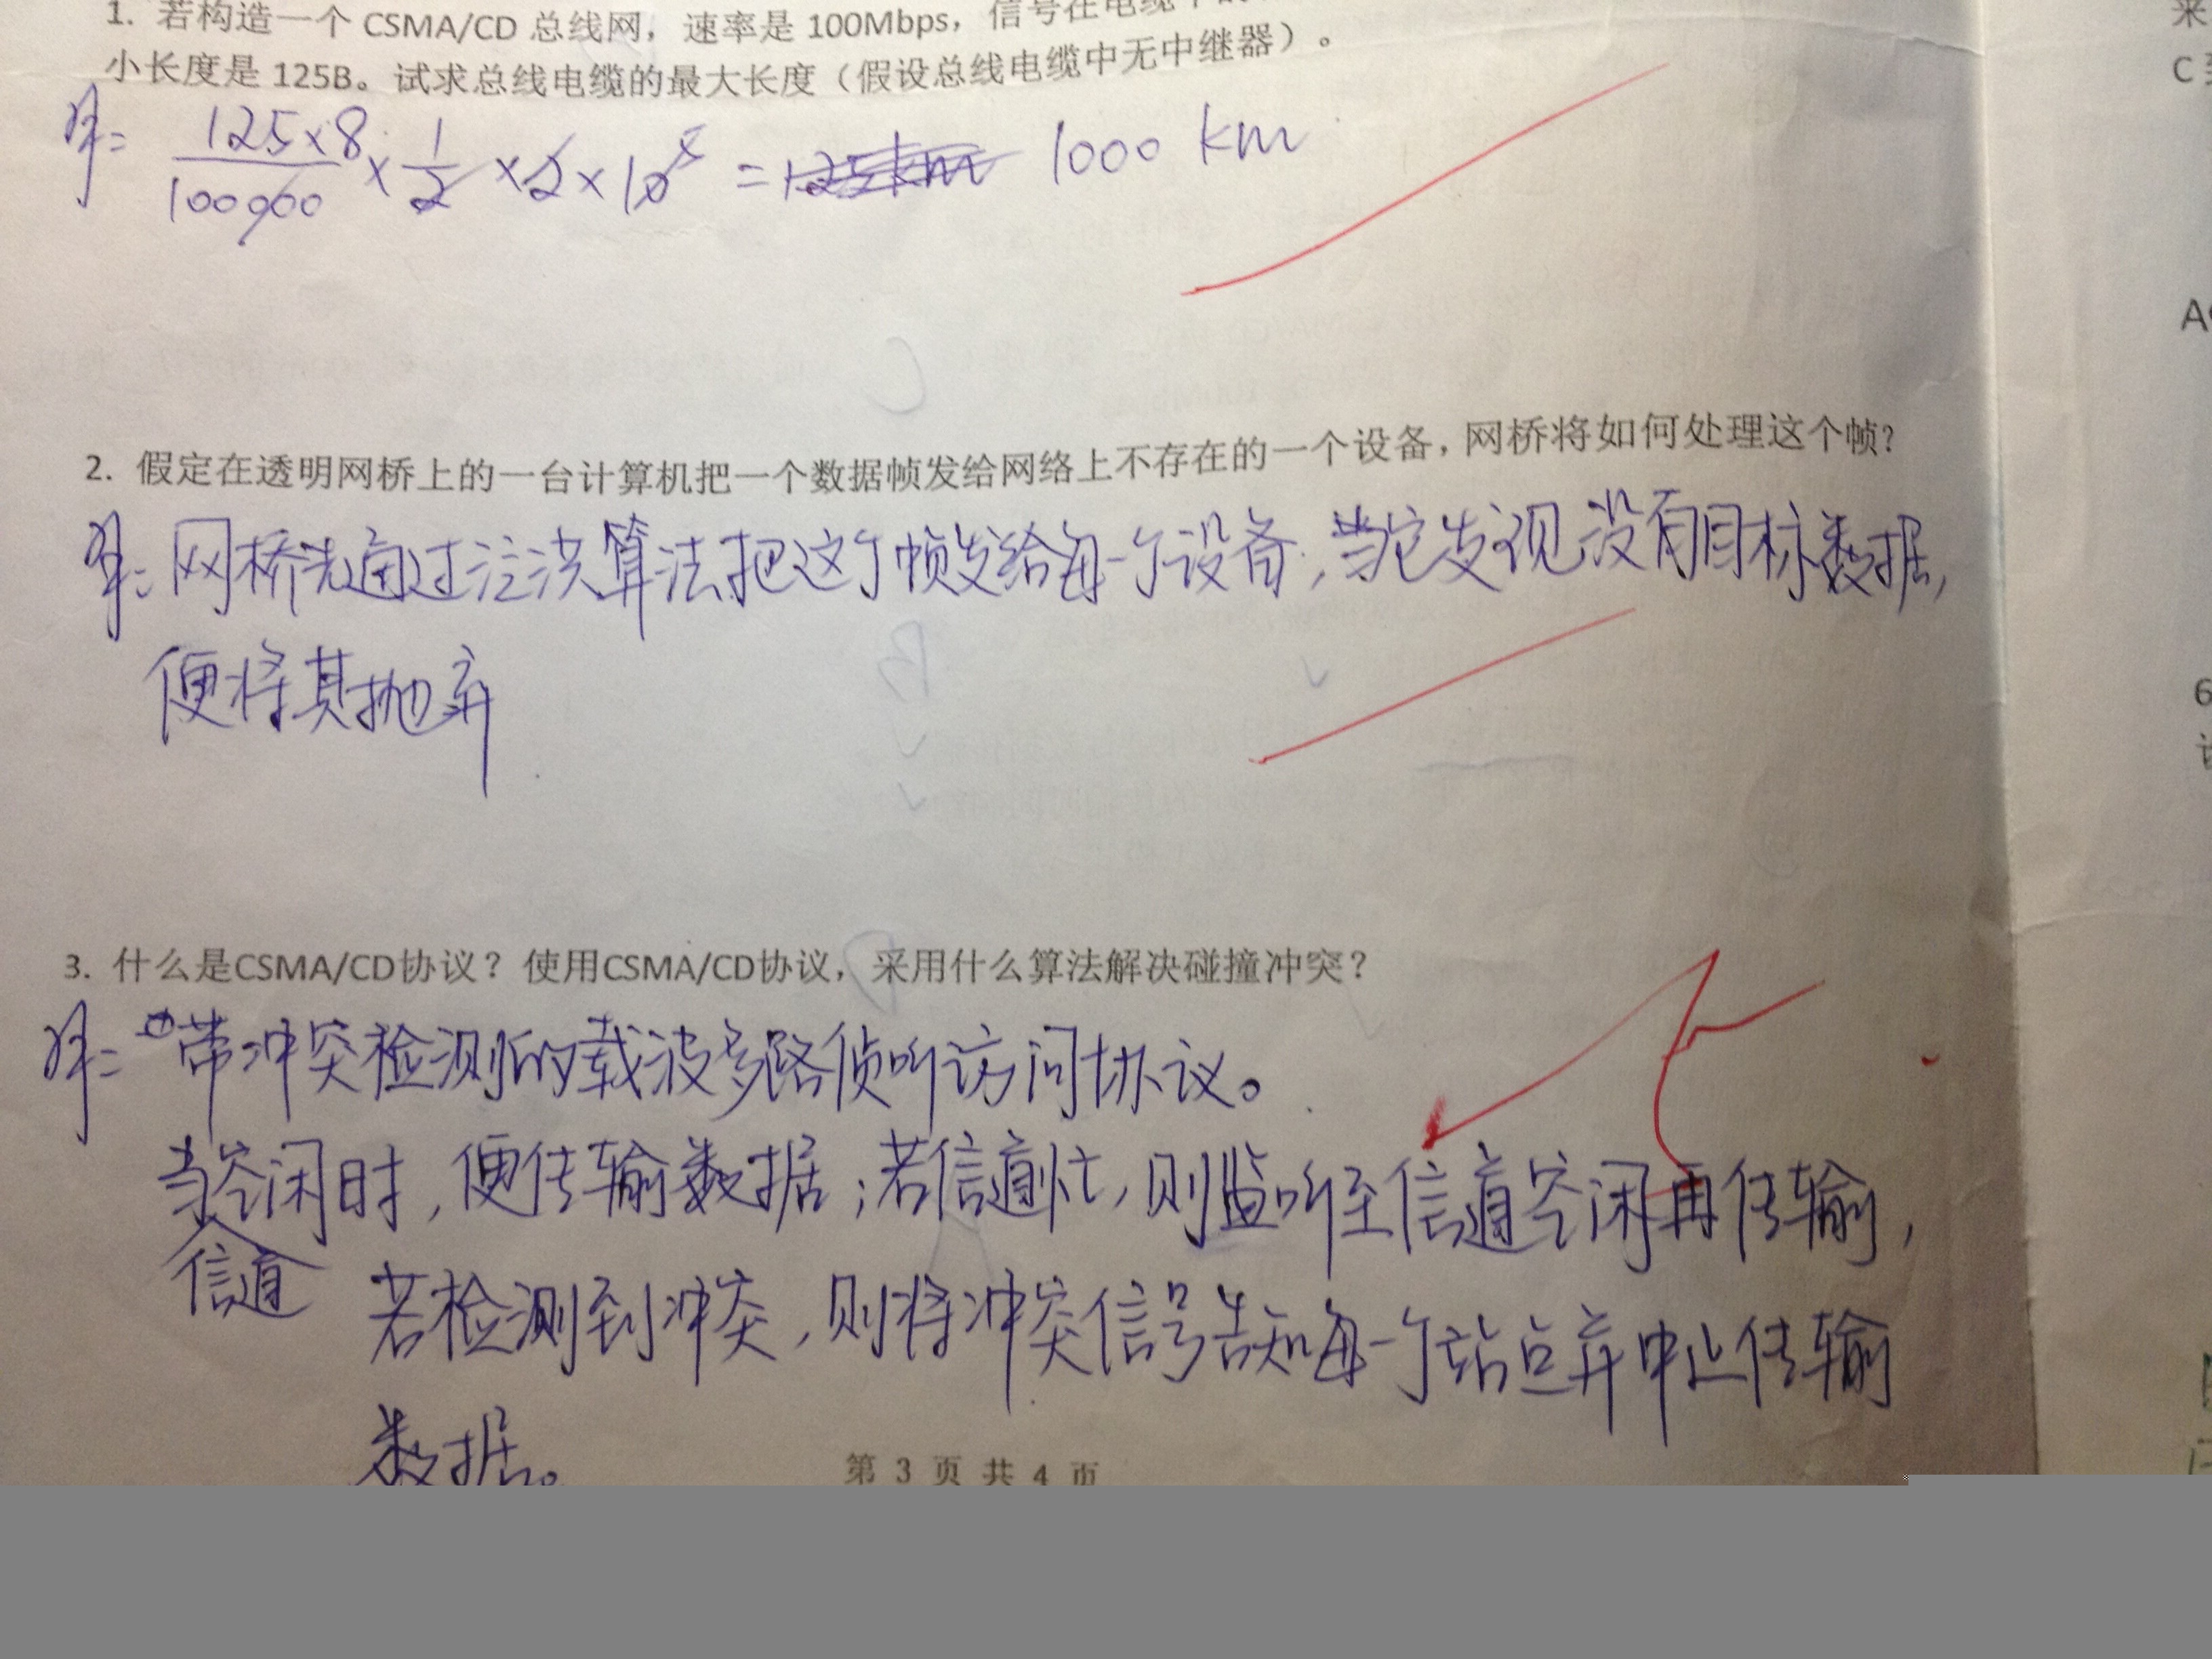 1. 若构造一个 CSMA/CD 总线网，速率是 100Mbps，信号在电缆中
小长度是 125B。试求总线电缆的最大长度（假设总线电缆中无中继器）。
125×8/100000 × 1/2 × 2 × 10⁵ = 1000 km
2. 假定在透明网桥上的一台计算机把一个数据帧发给网络上不存在的一个设备，网桥将如何处理这个帧？
网桥先通过泛洪算法把这个帧发给每一个设备，当它发现没有目标数据，
便将其抛弃
3. 什么是CSMA/CD协议？使用CSMA/CD协议，采用什么算法解决碰撞冲突？
带冲突检测的载波多路侦听访问协议。
当信道空闲时，便传输数据；若信道忙，则监听至信道空闲再传输，
若检测到冲突，则将冲突信号告知每一个站点并中止传输
数据。
第 3 页 共 4 页
采
C
6